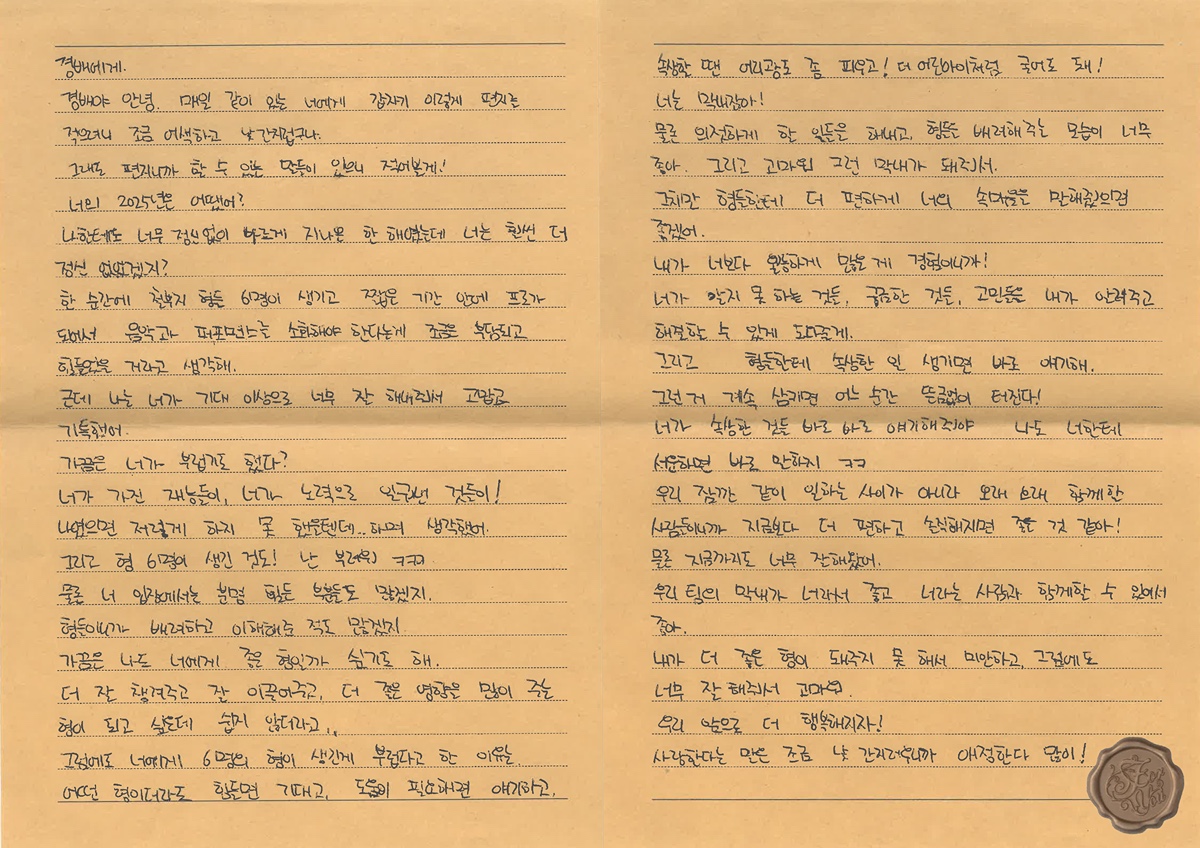 경배에게.
경배야 안녕. 매일 같이 있는 너에게 갑자기 이렇게 편지를
적으려니 조금 어색하고 낯간지럽구나.
그래도 편지니까 할 수 있는 말들이 있으니 적어볼게!
너의 2025년은 어땠어?
나한테도 너무 정신없이 빠르게 지나온 한 해였는데 너는 훨씬 더
정신 없었겠지?
한 순간에 천부지 형들 6명이 생기고 짧은 기간 안에 프로가
되어서 음악과 퍼포먼스를 소화해야 한다는게 조금은 부담되고
힘들었을 거라고 생각해.
근데 나는 너가 기대 이상으로 너무 잘 해내줘서 고맙고
기특했어.
가끔은 너가 부럽기도 했다?
너가 가진 재능들이, 너가 노력으로 일궈낸 것들이!
나였으면 저렇게 하지 못 했을텐데.. 하며 생각했어.
그리고 형 6명이 생긴 것도! 난 부러워 ㅋㅋㅋ
물론 너 입장에서는 분명 힘든 부분들도 많겠지.
형들이니까 배려하고 이해해준 적도 많겠지
가끔은 나도 너에게 좋은 형일까 싶기도 해.
더 잘 챙겨주고 잘 이끌어주고, 더 좋은 영향을 많이 주는
형이 되고 싶은데 쉽지 않더라고..
그럼에도 너에게 6명의 형이 생긴게 부럽다고 한 이유는,
어떤 형이더라도 힘들면 기대고, 도움이 필요하면 얘기하고,
속상할 땐 어리광도 좀 피우고! 더 어린아이처럼 굴어도 돼!
너는 막내잖아!
물론 의젓하게 한 일들을 해내고, 형들 배려해주는 모습이 너무
좋아. 그리고 고마워 그런 막내가 돼줘서.
그치만 형들한테 더 편하게 너의 속마음을 말해줬으면
좋겠어.
내가 너보다 월등하게 많은 게 경험이니까!
너가 알지 못 하는 것들, 궁금한 것들, 고민들은 내가 알려주고
해결할 수 있게 도와줄게.
그리고 형들한테 속상한 일 생기면 바로 얘기해.
그런 거 계속 삼키면 어느 순간 뜬금없이 터진다!
너가 속상한 것들 바로 바로 얘기해줘야 나도 너한테
서운하면 바로 말하지 ㅋㅋ
우리 잠깐 같이 일하는 사이가 아니라 오래 오래 함께할
사람들이니까 지금보다 더 편하고 솔직해지면 좋을 것 같아!
물론 지금까지도 너무 잘해왔어.
우리 팀의 막내가 너라서 좋고 너라는 사람과 함께할 수 있어서
좋아.
내가 더 좋은 형이 돼주지 못 해서 미안하고, 그럼에도
너무 잘 해줘서 고마워.
우리 앞으로 더 행복해지자!
사랑한다는 말은 조금 낯 간지러우니까 애정한다 많이!